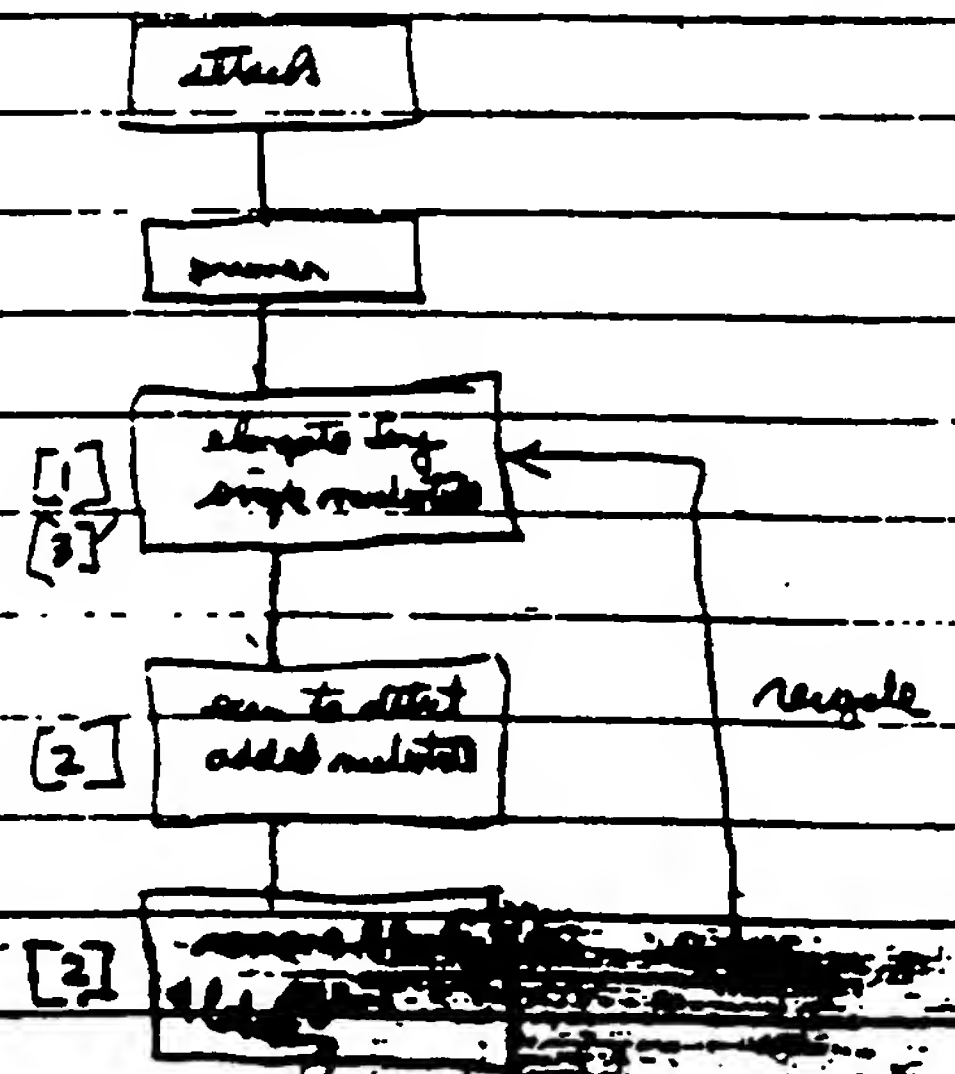 attach
primer
elongate by
single nucleotide
[1]
[3]
scan to detect
added nucleotide
[2]
recycle
[2]